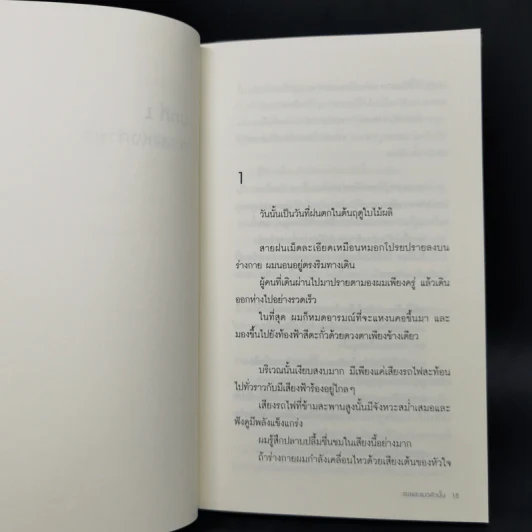 1
วันนั้นเป็นวันที่ฝนตกในต้นฤดูใบไม้ผลิ
สายฝนเม็ดละเอียดเหมือนหมอกโปรยปรายลงบน
ร่างกาย ผมนอนอยู่ตรงริมทางเดิน
ผู้คนที่เดินผ่านไปมาปรายตามองผมเพียงครู่ แล้วเดิน
ออกห่างไปอย่างรวดเร็ว
ในที่สุด ผมก็หมดอารมณ์ที่จะแหงนคอขึ้นมา และ
มองขึ้นไปยังท้องฟ้าสีตะกั่วด้วยดวงตาเพียงข้างเดียว
บริเวณนั้นเงียบสงบมาก มีเพียงแค่เสียงรถไฟสะท้อน
ไปทั่วราวกับมีเสียงฟ้าร้องอยู่ไกลๆ
เสียงรถไฟที่ข้ามสะพานสูงนั้นมีจังหวะสม่ำเสมอและ
ฟังดูมีพลังแข็งแกร่ง
ผมรู้สึกปลาบปลื้มชื่นชมในเสียงนี้อย่างมาก
ถ้าร่างกายผมกำลังเคลื่อนไหวด้วยเสียงเต้นของหัวใจ